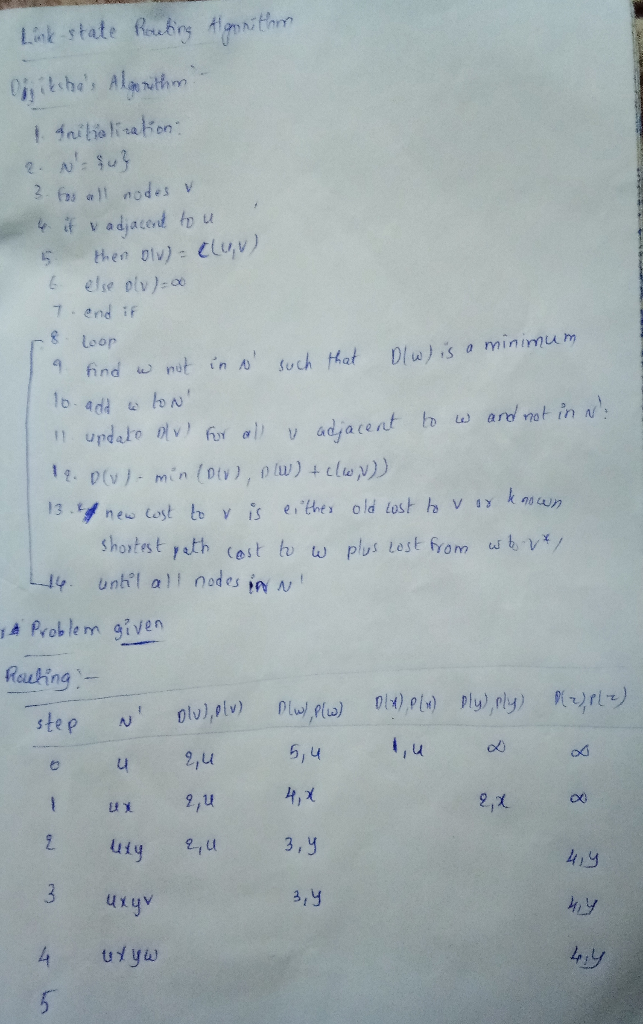 Link-state Routing Algorithm
Dijikstra's Algorithm:-
1. Initialization:
2. N' = {u}
3 for all nodes v
4 if v adjacent to u
5 then D(v) = c(u,v)
6 else D(v)=∞
7. end if
8 Loop
9 find w not in N' such that D(w) is a minimum
10. add w to N'
11 update D(v) for all v adjacent to w and not in N':
12. D(v) - min (D(v), D(w) + c(w,v))
13. new cost to v is either old cost to v or known
shortest path cost to w plus cost from w to v*/
14. until all nodes in N'
Problem given
Routing:-
step N' D(v),p(v) D(w),p(w) D(x),p(x) D(y),p(y) D(z),p(z)
0 u 2,u 5,u 1,u ∞ ∞
1 ux 2,u 4,x 2,x ∞
2 uxy 2,u 3,y 4,y
3 uxyv 3,y 4,y
4 uxyw 4,y
5